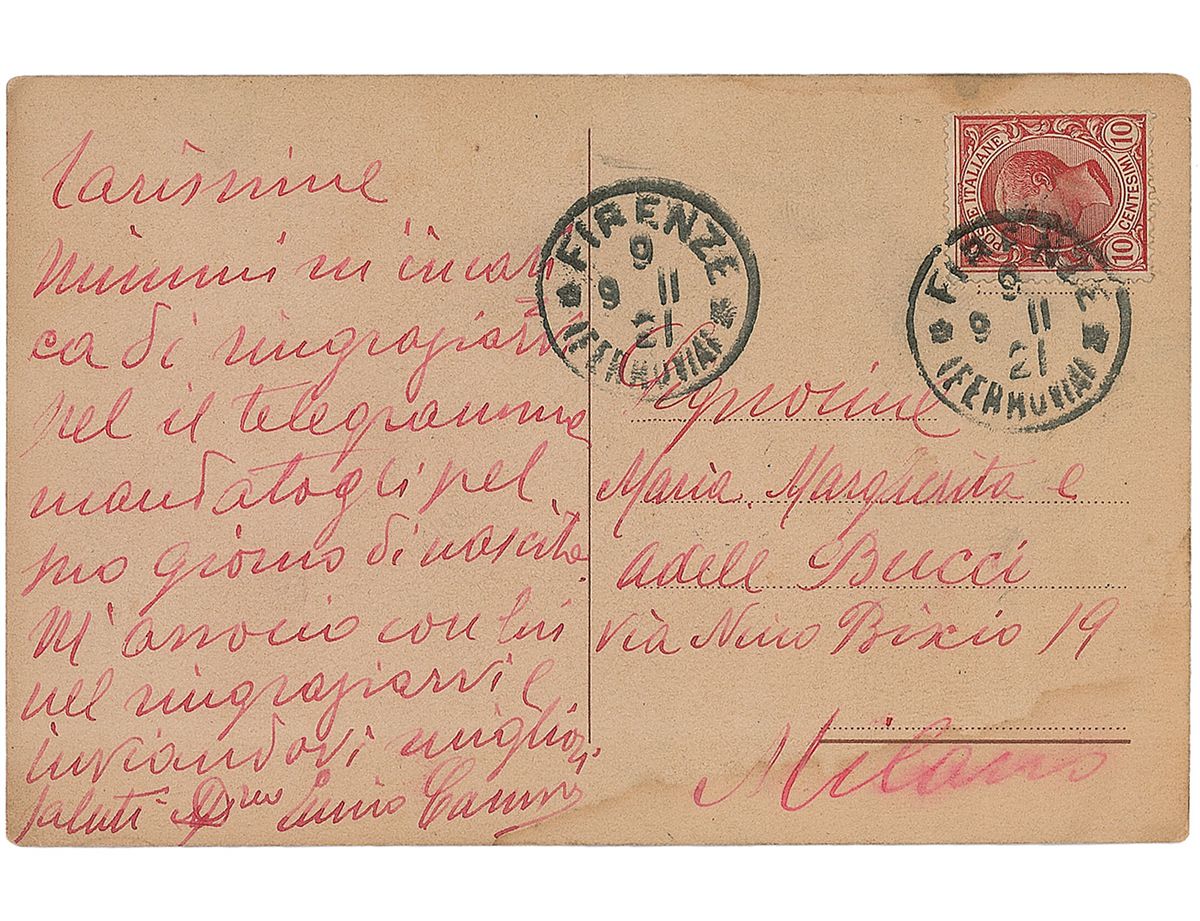 Carissime
Mimmi m'incari
ca di ringraziarvi
pel il telegramma
mandatogli pel
suo giorno di nascita.
M'associo con lui
nel ringraziarvi e
inviandovi migliori
saluti
FIRENZE
9
9 11
21
(FERROVIA)
POSTE ITALIANE
10 CENTESIMI 10
FIRENZE
9
9 11
21
(FERROVIA)
Signorine
Maria, Margherita e
Adele Bucci
Via Nino Bixio 19
Milano